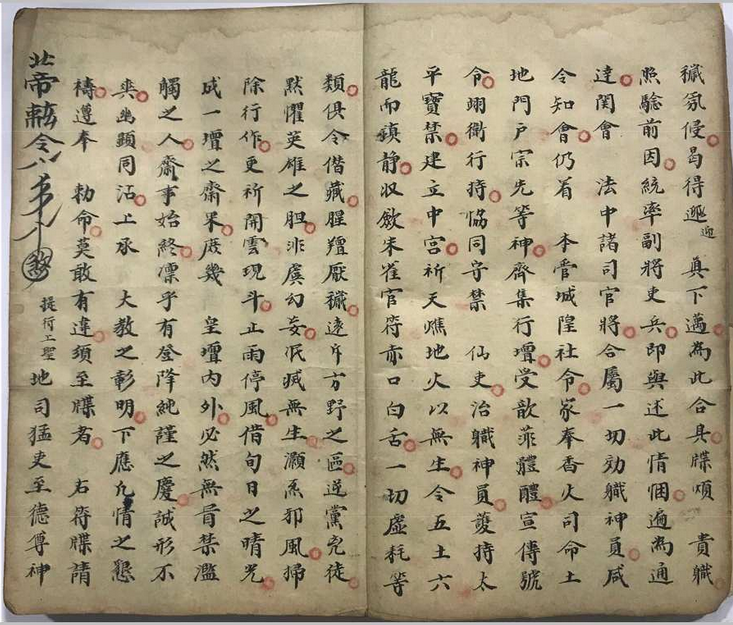 穢氛侵曷得迎 真下邁為此合具牒煩 貴職
照驗前因統率副將吏兵即與述此情悃遍為通
達関會 法中諸司官將合屬一切効職神員咸
令知會仍着 本管城隍社令家奉香火司命土
地門户宗先等神齊集行壇受歆菲體醴宣傳號
令翊衛行持恊同守禁 仙吏治職神員護持太
平寳禁建立中宫祈天燋地火以無生令五土六
龍而鎮静収斂朱雀官符赤口白舌一切虚耗等
類俱令偕藏腥羶厭穢遠斥方野之區逆黨兇徒
黙懼英雄之胆非虞幻妄泯滅無生灝炁邪風掃
除行作更祈開雲現斗止雨停風借旬日之晴光
成一壇之齋果庶幾 皇壇内外必然無冒禁濫
觸之人齋事始終凛乎有登降純謹之慶誠形不
爽幽顕同沾上承 大教之彰明下應凢情之懇
禱遵奉 勅命莫敢有違須至牒者 右符牒請
地司猛吏至德尊神